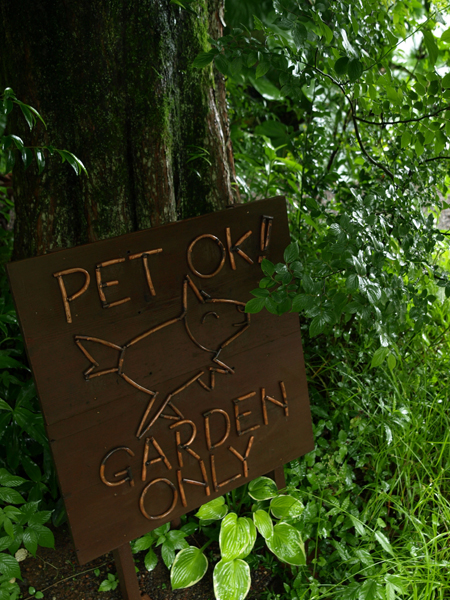 PET OK!
GARDEN
ONLY